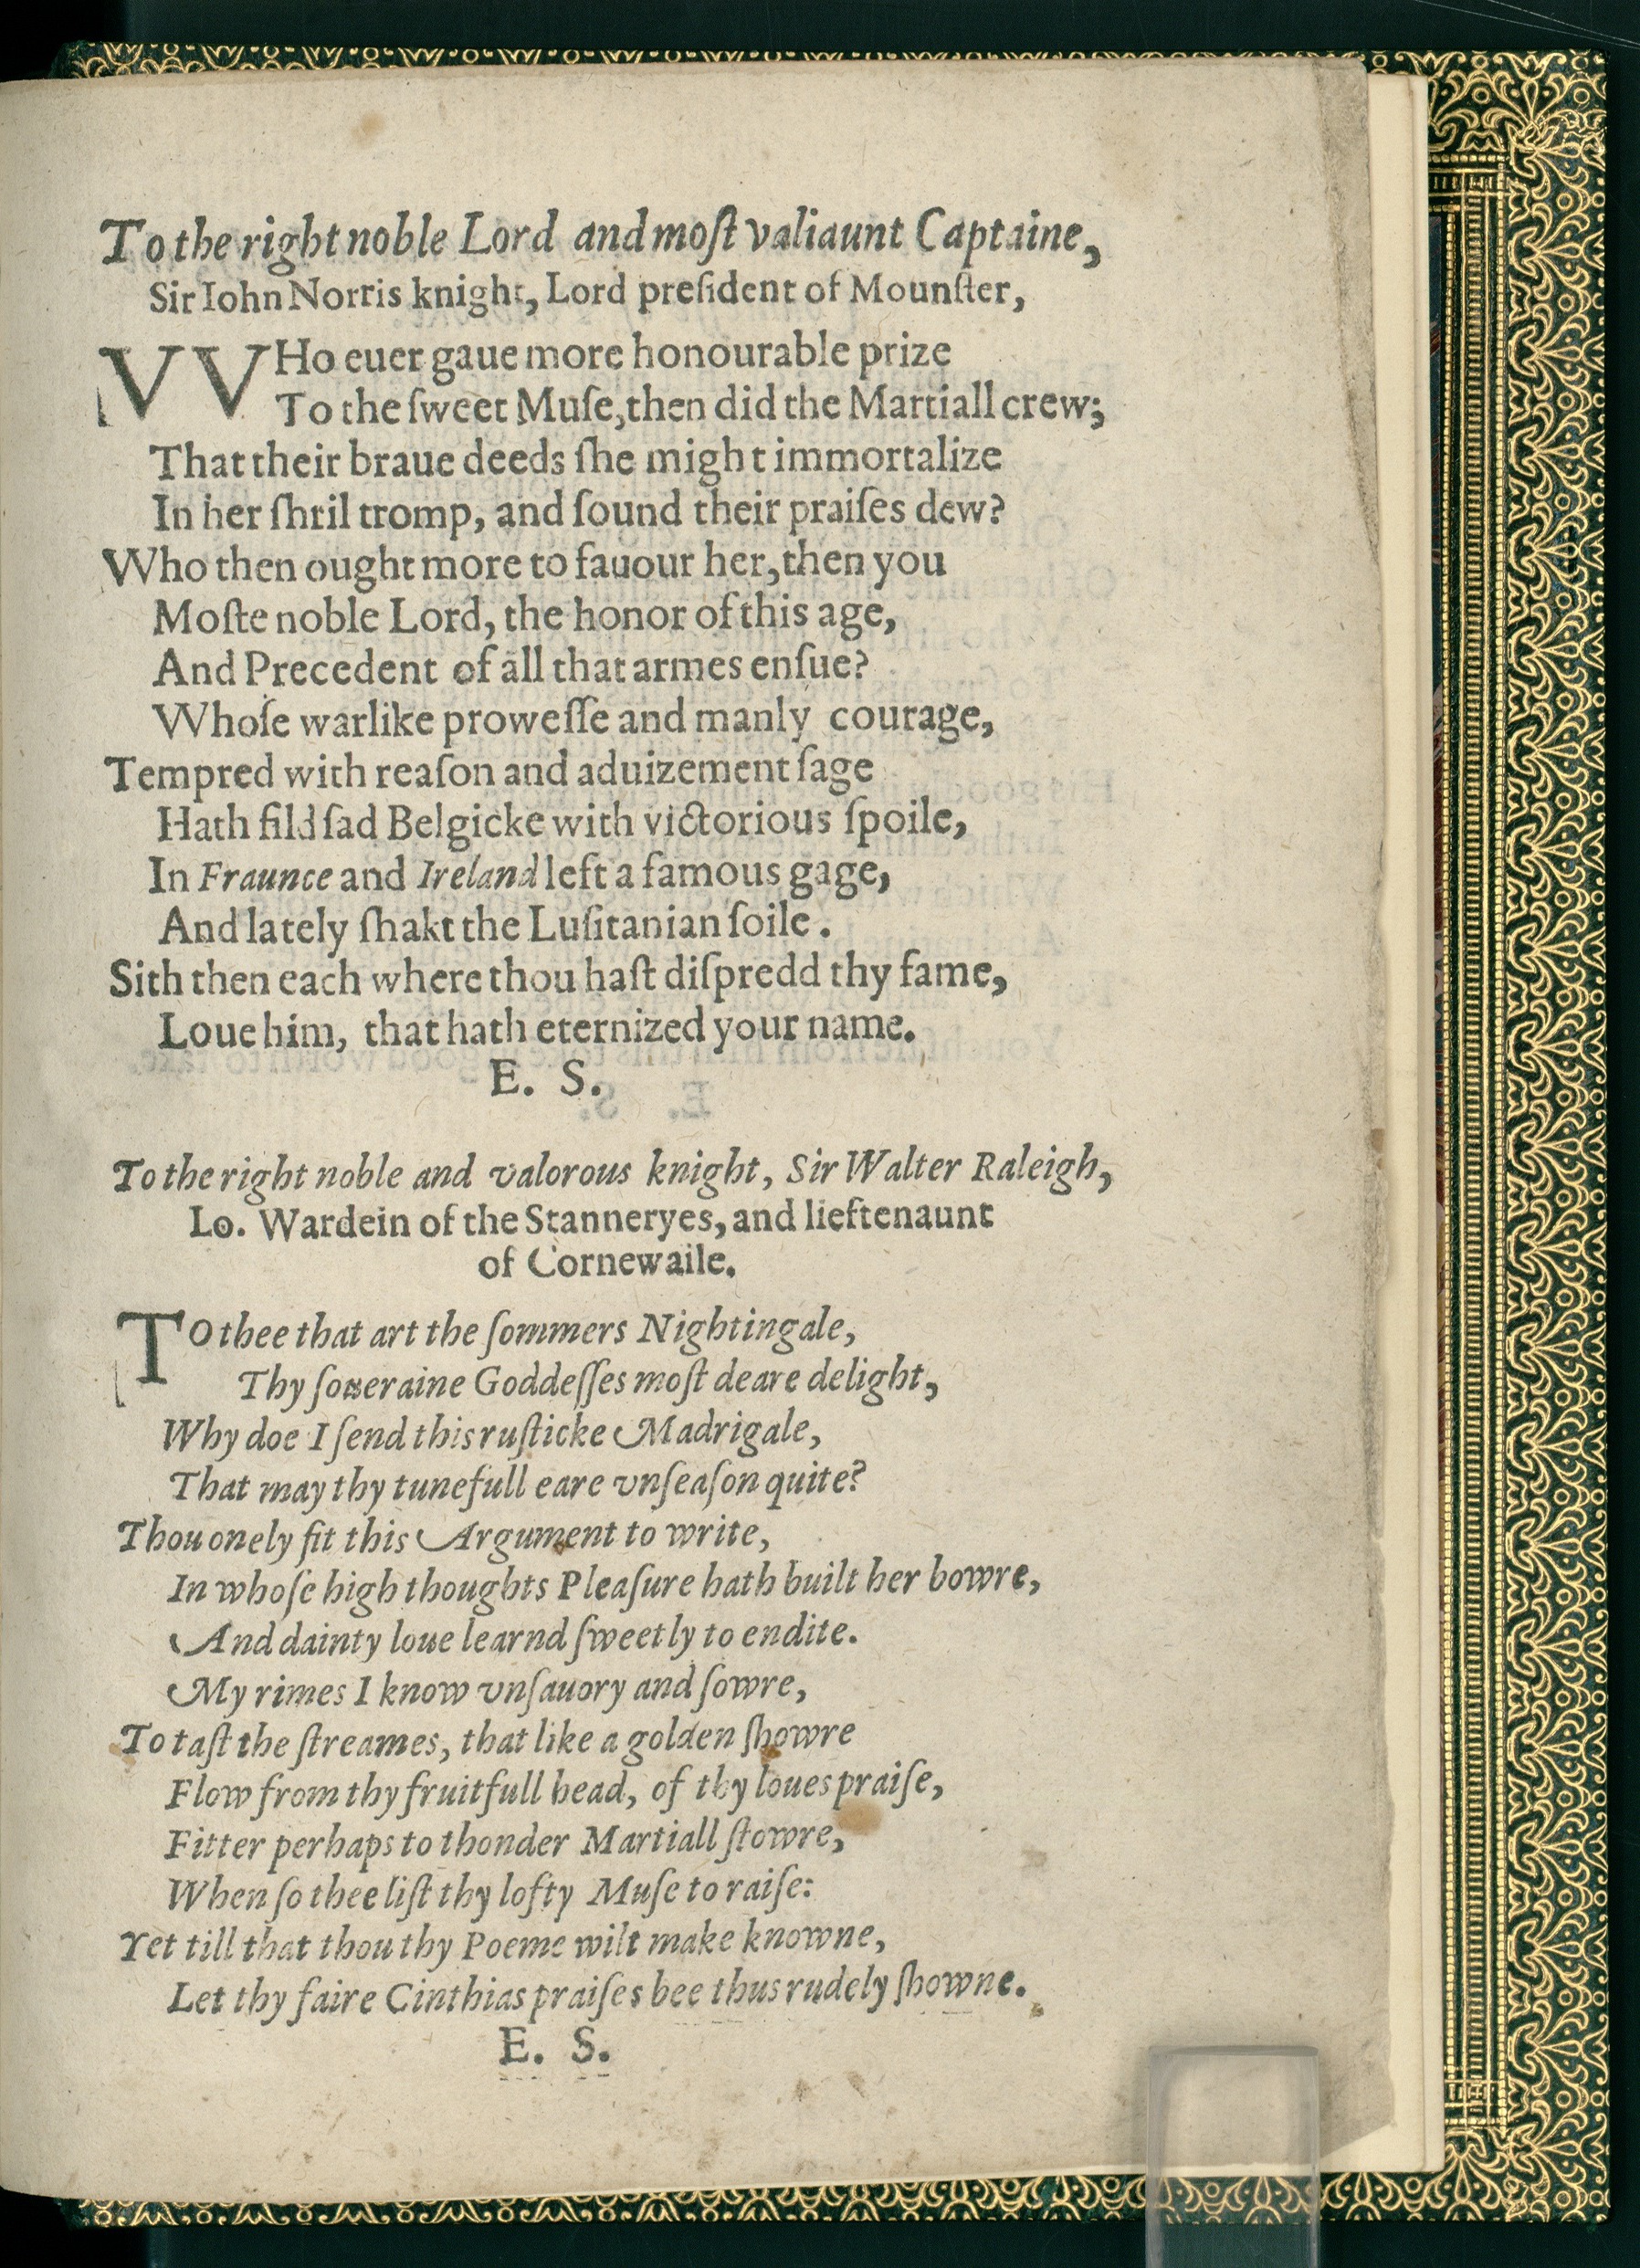 To the right noble Lord and moſt valiaunt Captaine,
Sir Iohn Norris knight, Lord preſident of Mounſter,
VVHo euer gaue more honourable prize
To the ſweet Muſe, then did the Martiall crew;
That their braue deeds ſhe might immortalize
In her ſhril tromp, and ſound their praiſes dew?
Who then ought more to fauour her, then you
Moſte noble Lord, the honor of this age,
And Precedent of all that armes enſue?
Whoſe warlike proweſſe and manly courage,
Tempred with reaſon and aduizement ſage
Hath fild ſad Belgicke with victorious ſpoile,
In Fraunce and Ireland left a famous gage,
And lately ſhakt the Luſitanian ſoile.
Sith then each where thou haſt diſpredd thy fame,
Loue him, that hath eternized your name.
E. S.
To the right noble and valorous knight, Sir Walter Raleigh,
Lo. Wardein of the Stanneryes, and lieftenaunt
of Cornewaile.
TO thee that art the ſommers Nightingale,
Thy ſoueraine Goddeſſes moſt deare delight,
Why doe I ſend this ruſticke Madrigale,
That may thy tunefull eare vnſeaſon quite?
Thou onely fit this Argument to write,
In whoſe high thoughts Pleaſure hath built her bowre,
And dainty loue learnd ſweetly to endite.
My rimes I know vnſauory and ſowre,
To taſt the ſtreames, that like a golden ſhowre
Flow from thy fruitfull head, of thy loues praiſe,
Fitter perhaps to thonder Martiall ſtowre,
When ſo thee liſt thy lofty Muſe to raiſe:
Yet till that thou thy Poeme wilt make knowne,
Let thy faire Cinthias praiſes bee thus rudely ſhowne.
E. S.